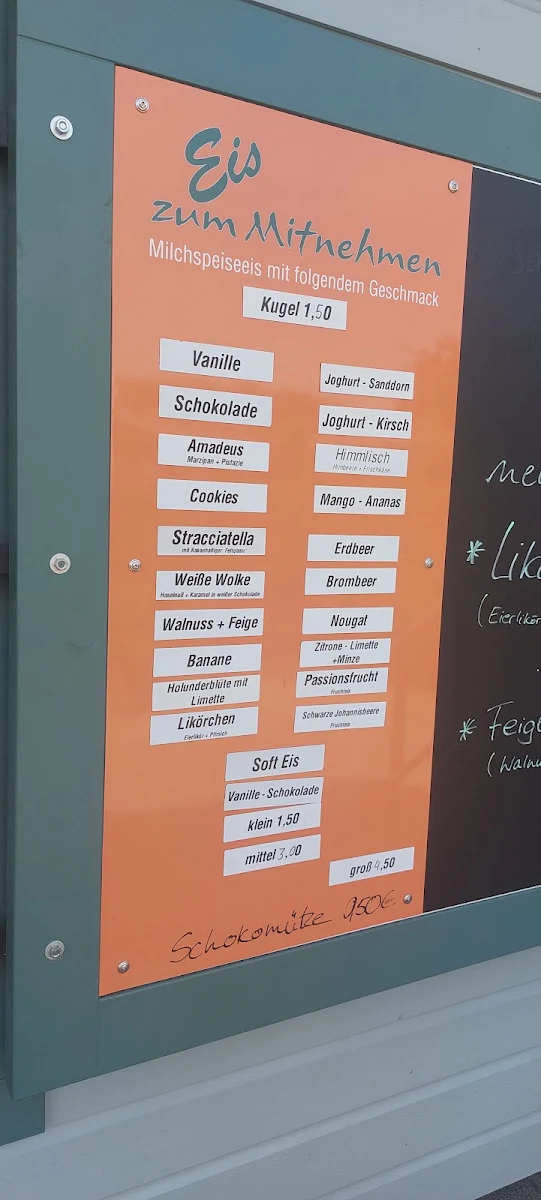 Eis
zum Mitnehmen
Milchspeiseeis mit folgendem Geschmack
Kugel 1,50
Vanille
Schokolade
Amadeus
Marzipan + Pistazie
Cookies
Stracciatella
mit Kakaohaltiger Fettglasur
Weiße Wolke
Haselnuß + Karamel in weißer Schokolade
Walnuss + Feige
Banane
Holunderblüte mit
Limette
Likörchen
Eierlikör + Pfirsich
Joghurt - Sanddorn
Joghurt - Kirsch
Himmlisch
Himbeere + Frischkäse
Mango - Ananas
Erdbeer
Brombeer
Nougat
Zitrone - Limette
+Minze
Passionsfrucht
Fruchteis
Schwarze Johannisbeere
Fruchteis
Soft Eis
Vanille - Schokolade
klein 1,50
mittel 3,00
groß 4,50
Schokomütze 0,50€
* Lik
(Eierlikör
* Feig
(Walnu